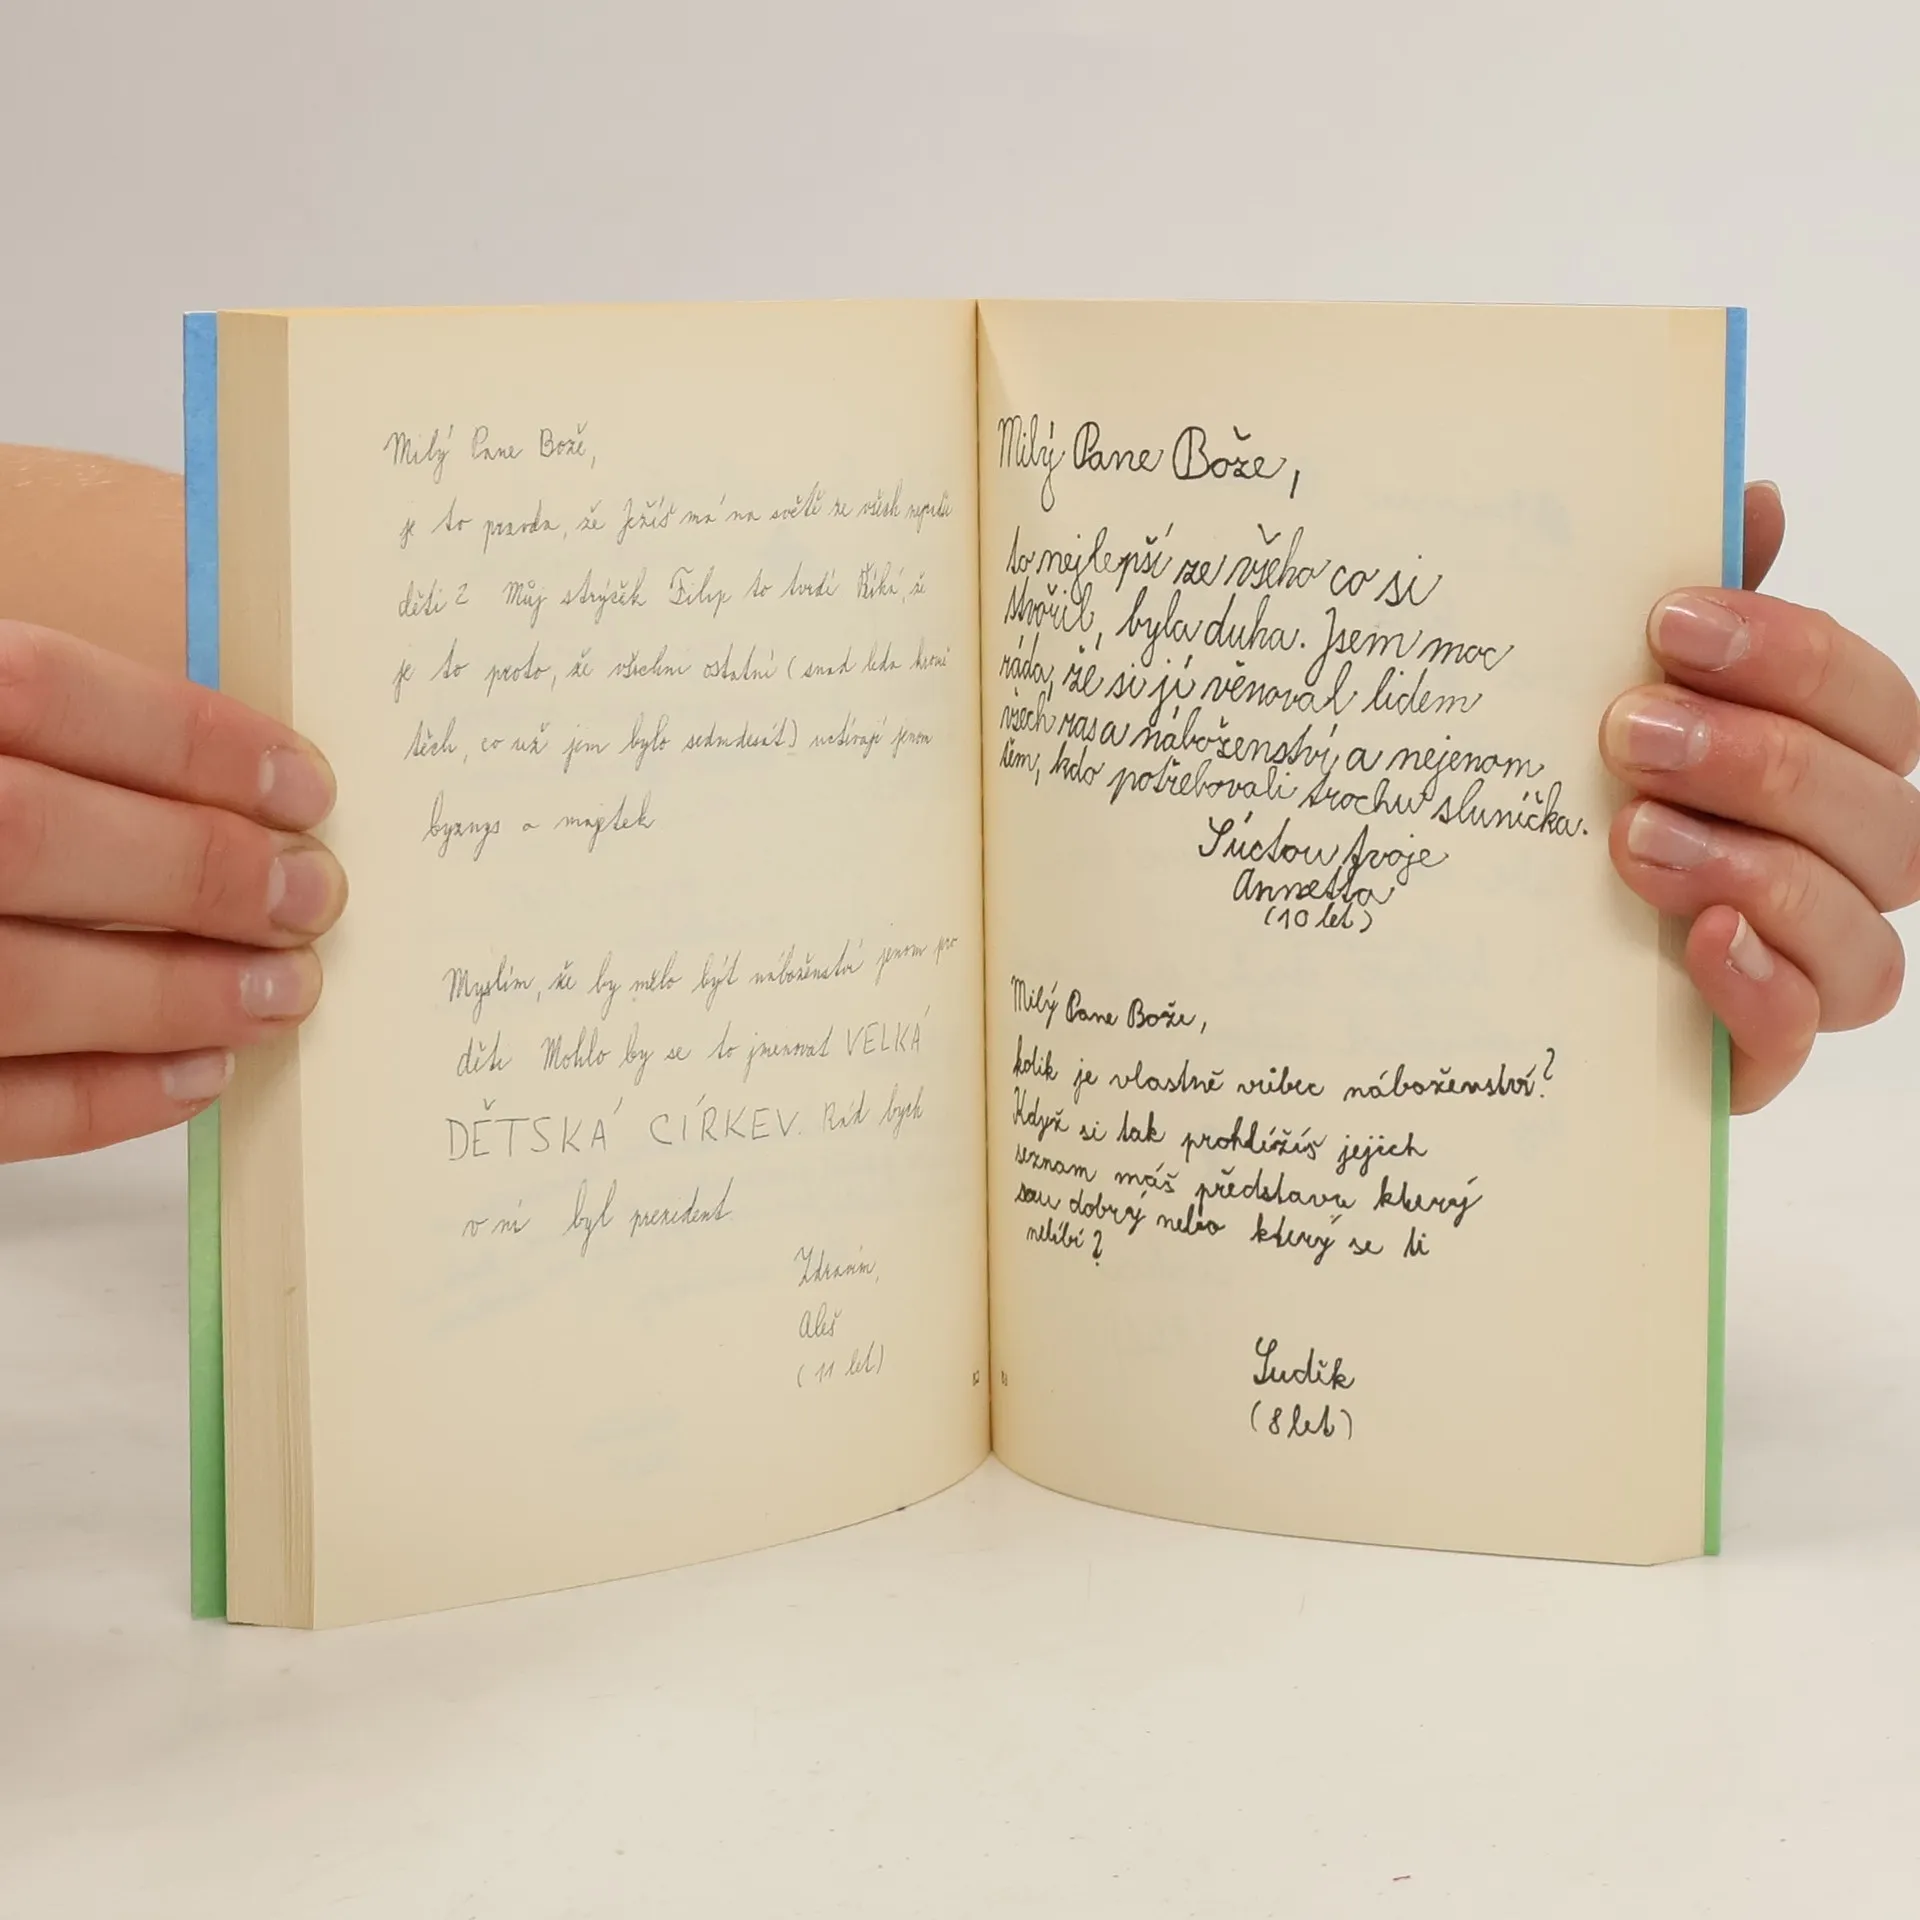 Milý Pane Bože,
je to pravda, že Ježíš má na světě ze všech nejvíc
dětí? Můj strýček Filip to tvrdí Říká, že
je to proto, že všichni ostatní (snad leda kromě
těch, co už jim bylo sedmdesát) uctívají jenom
byznys a majetek
Myslím, že by mělo být náboženství jenom pro
děti Mohlo by se to jmenovat VELKÁ
DĚTSKÁ CÍRKEV. Rád bych
v ní byl prezident
Zdravím,
Aleš
(11 let)
Milý Pane Bože,
to nejlepší ze všeho co si
stvořil, byla duha. Jsem moc
ráda, žé si jí věnoval lidem
všech ras a náboženství a nejenom
těm, kdo potřebovali trochu sluníčka.
Súctou tvoje
Annetta
(10 let)
Milý Pane Bože,
kolik je vlastně vubec náboženství?
Když si tak prohlížíš jejich
seznam máš představu který
sou dobrý nebo který se ti
nelíbí?
Luděk
(8 let)